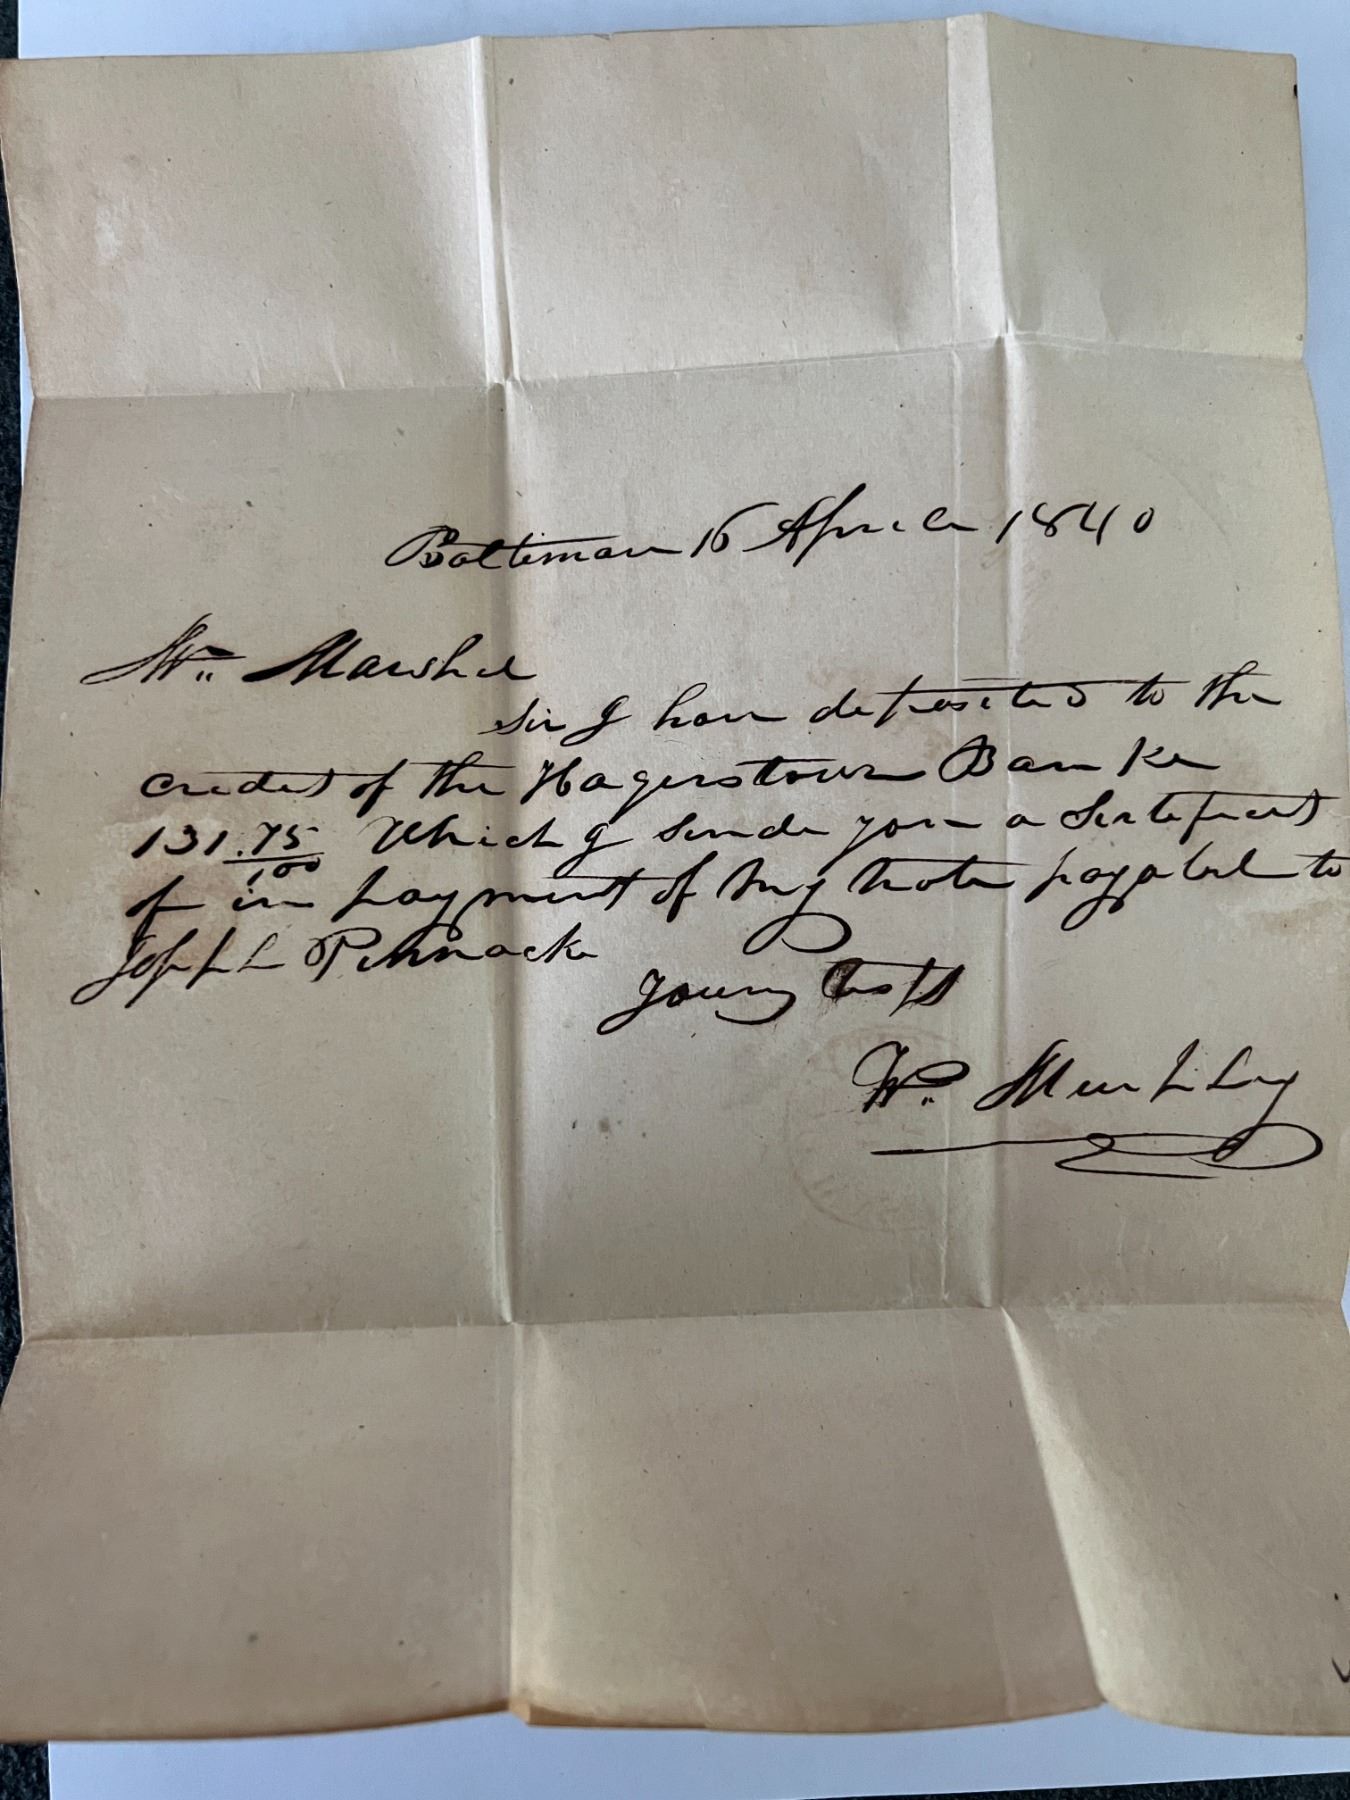 Baltimore 16 Aprile 1840
Wm Marshel
Sir I have deposited to the
credet of the Hagerstown Banke
131.75/100 Which I sende you a Serteficat
of in payment of my note payabel to
Joseph Pennock
yours
Wm Murphey